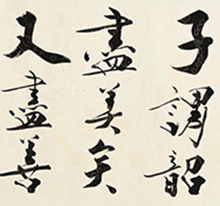 子謂韶
盡美矣
又盡善